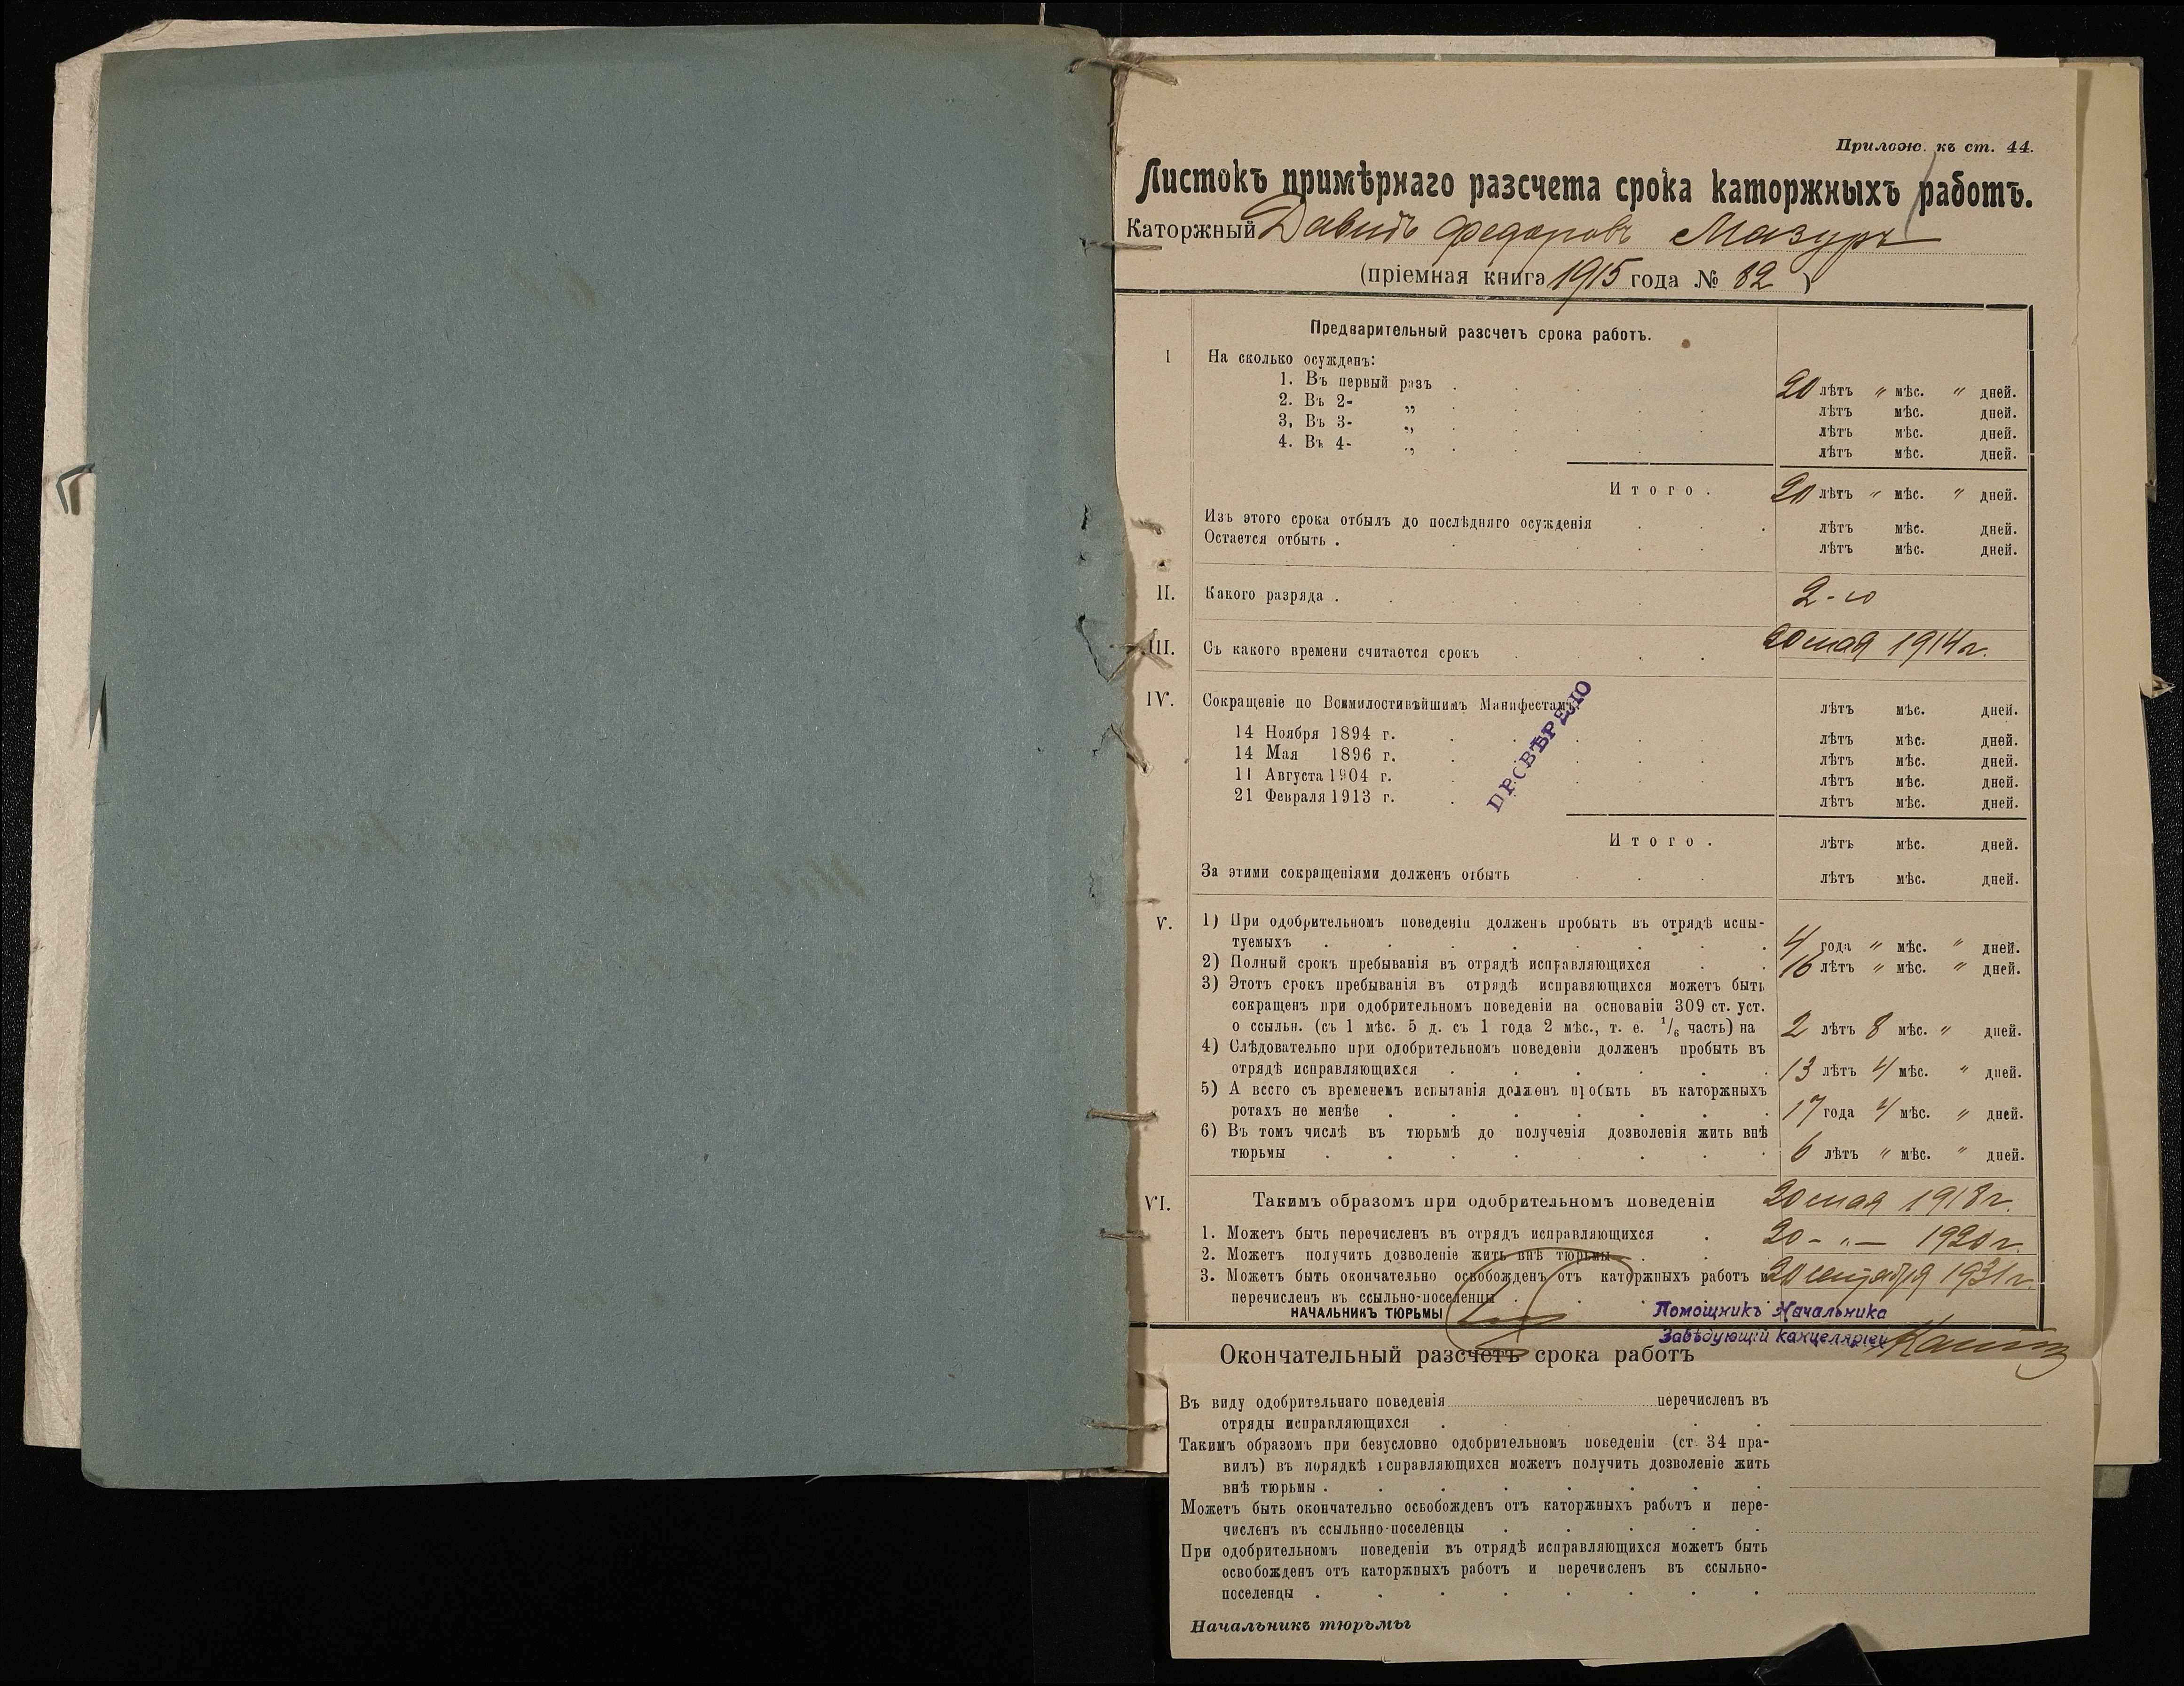 Прилож. къ ст. 44.
Листокъ примѣрнаго разсчета срока каторжныхъ работъ.
Каторжный Давидъ Федоровъ Мазуръ
(пріемная книга 1915 года № 82 )
Предварительный разсчетъ срока работъ.
I На сколько осужденъ:
1. Въ первый разъ . . . . 20 лѣтъ " мѣс. " дней.
2. Въ 2- „ . . . . лѣтъ мѣс. дней.
3, Въ 3- „ . . . . лѣтъ мѣс. дней.
4. Въ 4- „ . . . . лѣтъ мѣс. дней.
Итого . 20 лѣтъ " мѣс. " дней.
Изъ этого срока отбылъ до послѣдняго осужденія . . . лѣтъ мѣс. дней.
Остается отбыть . . . . . лѣтъ мѣс. дней.
II. Какого разряда . . . . 2-го
III. Съ какого времени считается срокъ . . . 20 мая 1914 г.
IV. Сокращеніе по Всемилостивѣйшимъ Манифестамъ: лѣтъ мѣс. дней.
14 Ноября 1894 г. . . . . . лѣтъ мѣс. дней.
14 Мая 1896 г. . . . . . лѣтъ мѣс. дней.
11 Августа 1904 г. . . . . . лѣтъ мѣс. дней.
21 Февраля 1913 г. . лѣтъ мѣс. дней.
ПРОВѢРЕНО
Итого . лѣтъ мѣс. дней.
За этими сокращеніями долженъ отбыть . . . лѣтъ мѣс. дней.
V. 1) При одобрительномъ поведеніи долженъ пробыть въ отрядѣ испы-
туемыхъ . . . . . . . . 4 года " мѣс. " дней.
2) Полный срокъ пребыванія въ отрядѣ исправляющихся . . 16 лѣтъ " мѣс. " дней.
3) Этотъ срокъ пребыванія въ отрядѣ исправляющихся можетъ быть
сокращенъ при одобрительномъ поведеніи на основаніи 309 ст. уст.
о ссыльн. (съ 1 мѣс. 5 д. съ 1 года 2 мѣс., т. е. 1/6 часть) на 2 лѣтъ 8 мѣс. " дней.
4) Слѣдовательно при одобрительномъ поведеніи долженъ пробыть въ
отрядѣ исправляющихся . . . . . . 13 лѣтъ 4 мѣс. " дней.
5) А всего съ временемъ испытанія долженъ пробыть въ каторжныхъ
ротахъ не менѣе . . . . . . . 17 года 4 мѣс. " дней.
6) Въ томъ числѣ въ тюрьмѣ до полученія дозволенія жить внѣ
тюрьмы . . . . . . . . 6 лѣтъ " мѣс. " дней.
VI. Такимъ образомъ при одобрительномъ поведеніи 20 мая 1918 г.
1. Можетъ быть перечисленъ въ отрядъ исправляющихся . 20 - " - 1920 г.
2. Можетъ получить дозволеніе жить внѣ тюрьмы . . .
3. Можетъ быть окончательно освобожденъ отъ каторжныхъ работъ и 20 сентября 1931 г.
перечисленъ въ ссыльно-поселенцы . . . . .
НАЧАЛЬНИКЪ ТЮРЬМЫ
Помощникъ Начальника
Завѣдующій канцеляріей
Окончательный разсчетъ срока работъ
Въ виду одобрительнаго поведенія перечисленъ въ
отряды исправляющихся . . . .
Такимъ образомъ при безусловно одобрительномъ поведеніи (ст. 34 пра-
вилъ) въ порядкѣ исправляющихся можетъ получить дозволеніе жить
внѣ тюрьмы . . . . . . . .
Можетъ быть окончательно освобожденъ отъ каторжныхъ работъ и пере-
численъ въ ссыльнно-поселенцы . . . . .
При одобрительномъ поведеніи въ отрядѣ исправляющихся можетъ быть
освобожденъ отъ каторжныхъ работъ и перечисленъ въ ссыльно-
поселенцы . . . . . . . .
Начальникъ тюрьмы